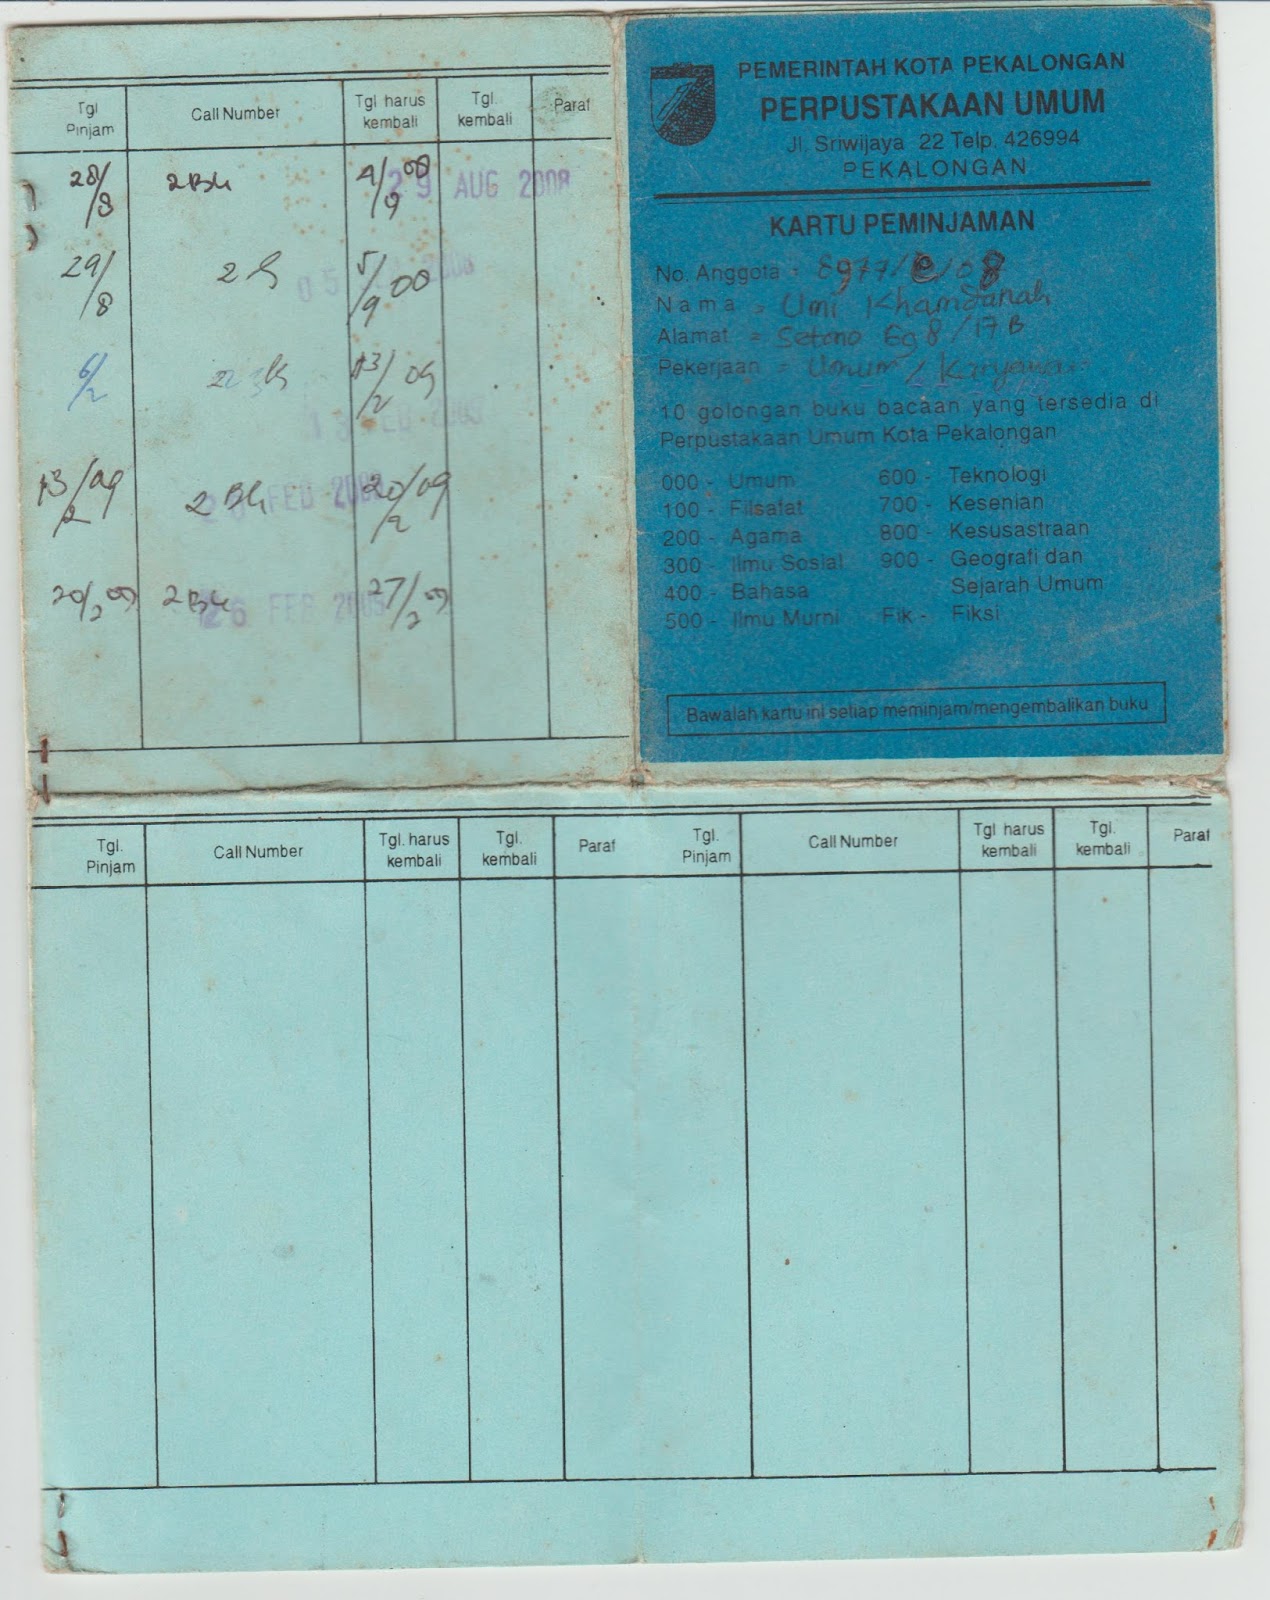 Tgl Pinjam Call Number Tgl harus kembali Tgl. kembali Paraf
28/8 2 Bk 4/9 08
29 AUG 2008
29/8 5/9 08
05 2008
6/2 13/2 09
13 FEB 2009
13/2 09 2 Bk 20/2 09
FEB 2009
20/2 09 2 Bk 27/2 09
26 FEB 2009
PEMERINTAH KOTA PEKALONGAN
PERPUSTAKAAN UMUM
Jl. Sriwijaya 22 Telp. 426994
PEKALONGAN
KARTU PEMINJAMAN
No. Anggota = 8977/C/08
Nama = Umi Khamdanah
Alamat = Setono Gg 8/17 B
Pekerjaan = Umum / Karyawan
10 golongan buku bacaan yang tersedia di
Perpustakaan Umum Kota Pekalongan
000 - Umum 600 - Teknologi
100 - Filsafat 700 - Kesenian
200 - Agama 800 - Kesusastraan
300 - Ilmu Sosial 900 - Geografi dan
400 - Bahasa Sejarah Umum
500 - Ilmu Murni Fik - Fiksi
Bawalah kartu ini setiap meminjam/mengembalikan buku
Tgl. Pinjam Call Number Tgl. harus kembali Tgl. kembali Paraf
Tgl. Pinjam Call Number Tgl harus kembali Tgl. kembali Paraf